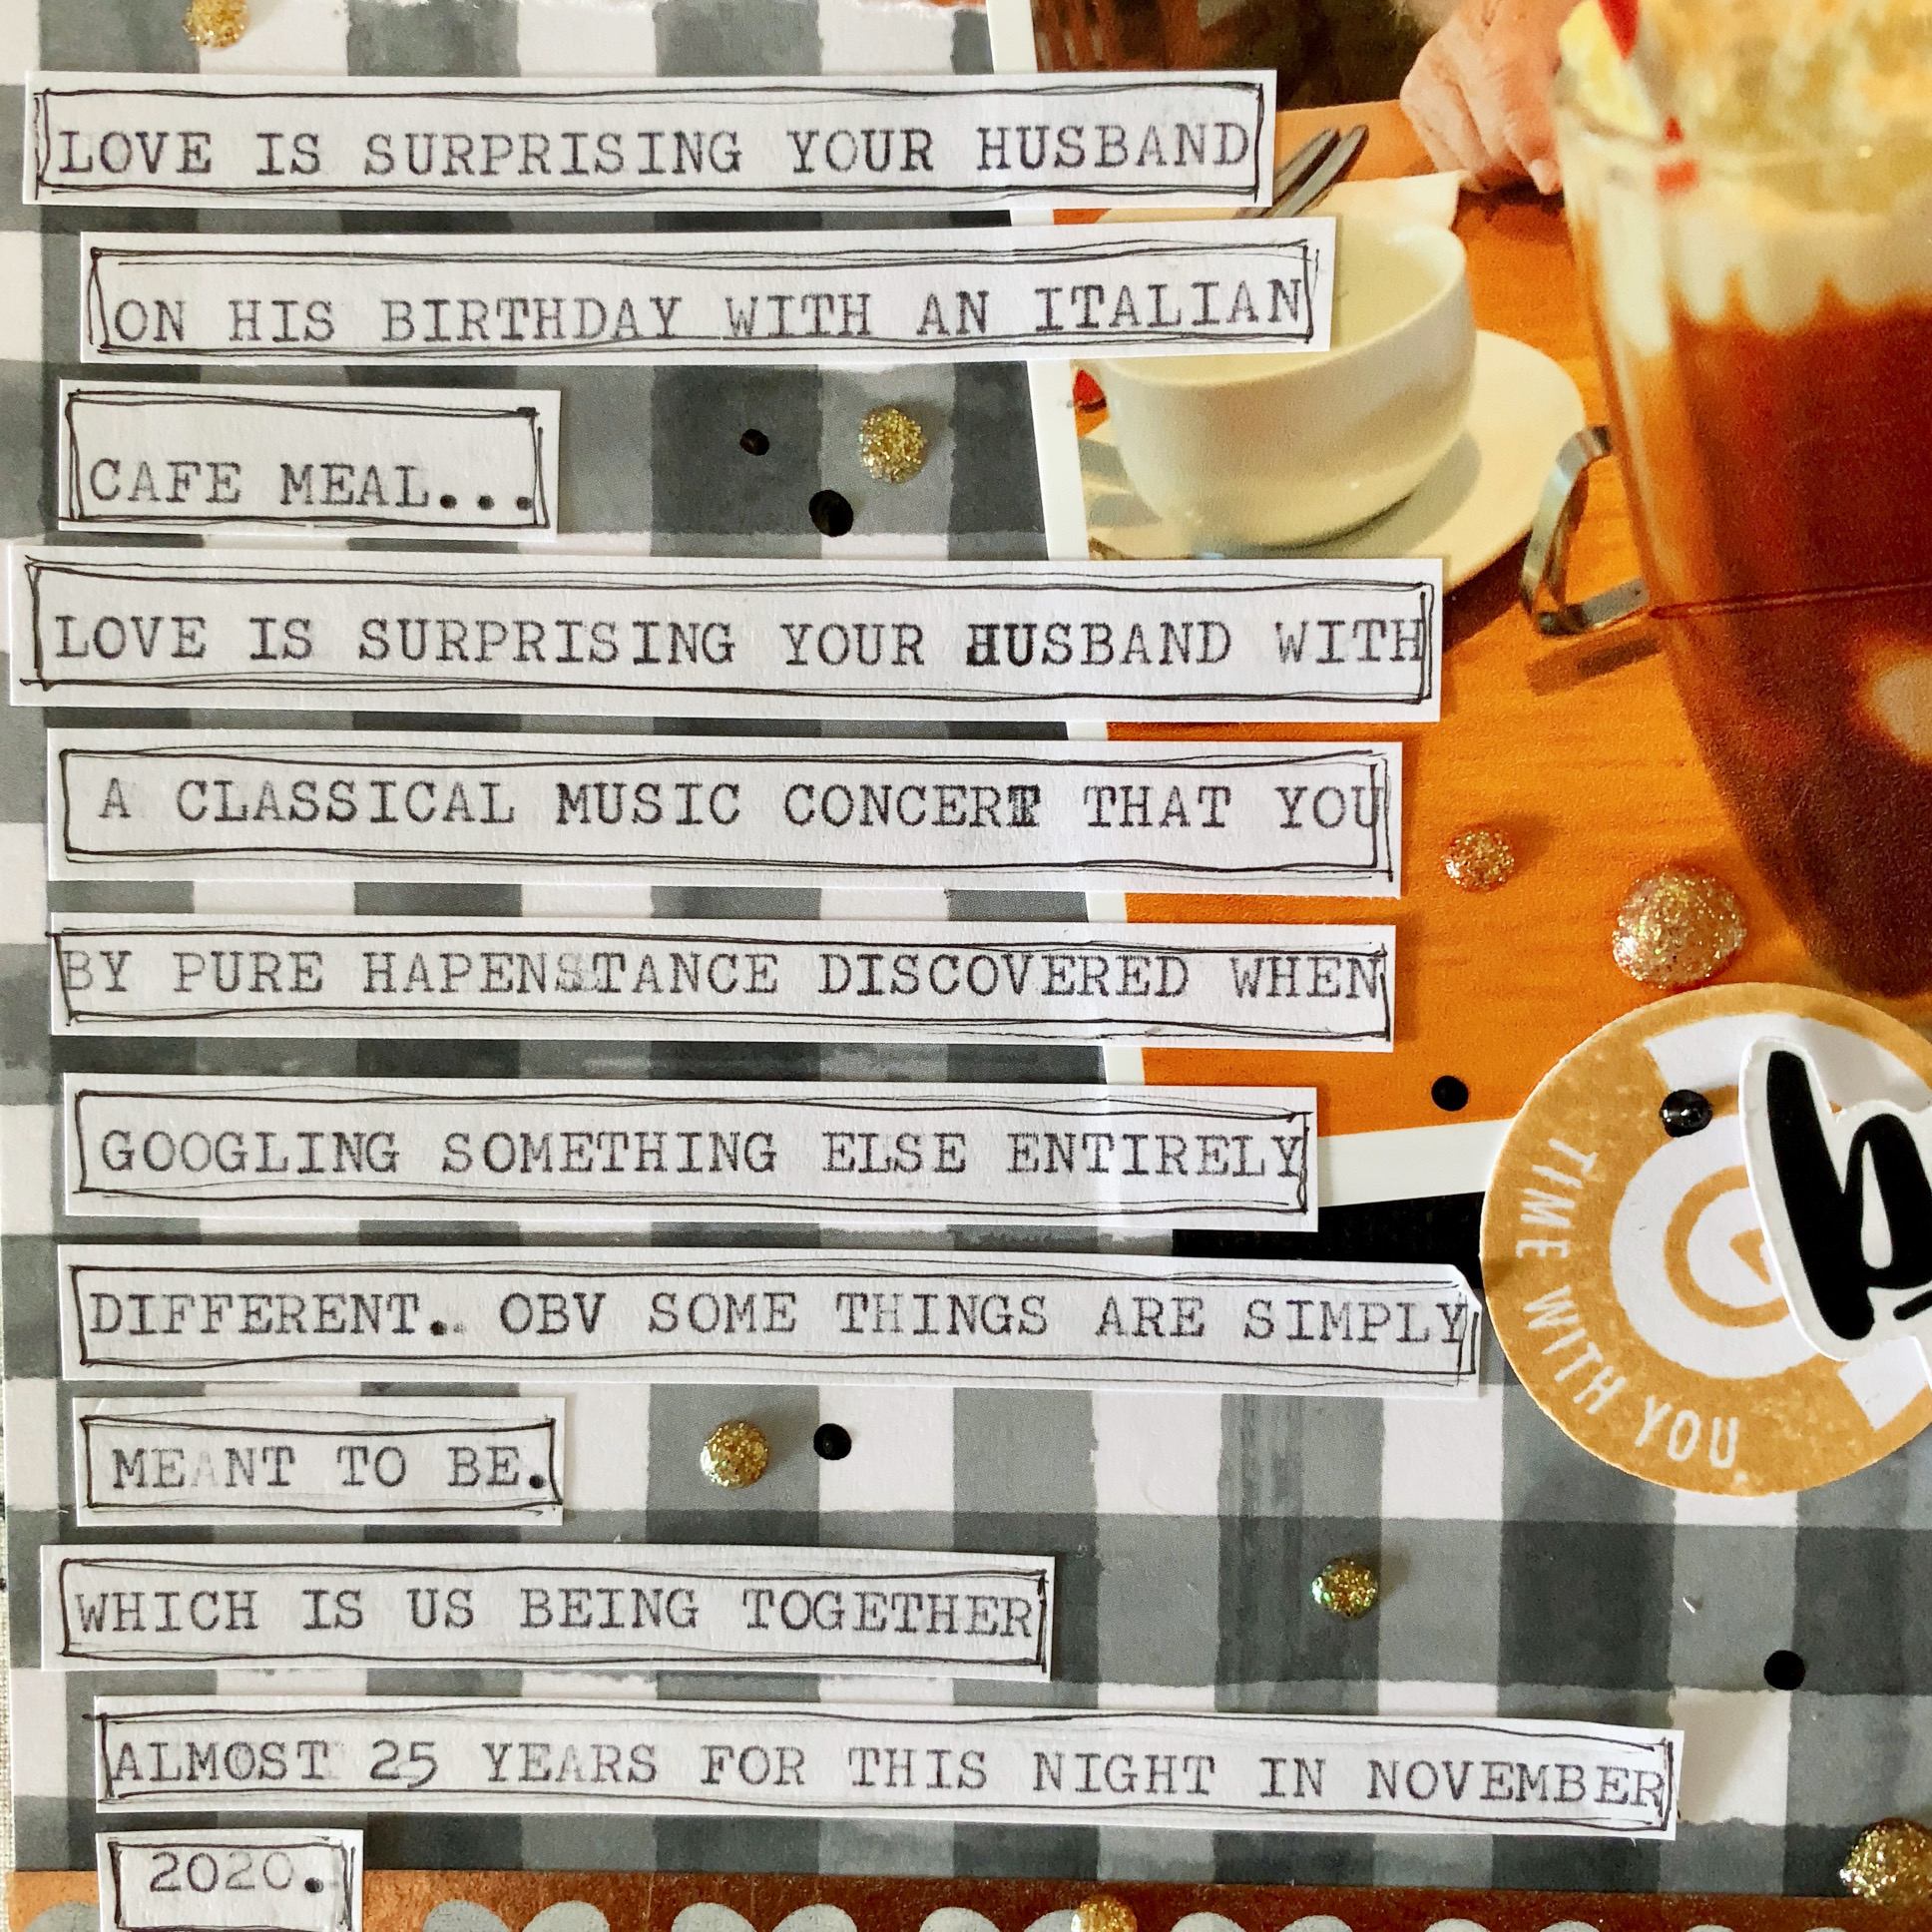 LOVE IS SURPRISING YOUR HUSBAND
ON HIS BIRTHDAY WITH AN ITALIAN
CAFE MEAL...
LOVE IS SURPRISING YOUR HUSBAND WITH
A CLASSICAL MUSIC CONCERT THAT YOU
BY PURE HAPENSTANCE DISCOVERED WHEN
GOOGLING SOMETHING ELSE ENTIRELY
DIFFERENT.. OBV SOME THINGS ARE SIMPLY
MEANT TO BE.
WHICH IS US BEING TOGETHER
ALMOST 25 YEARS FOR THIS NIGHT IN NOVEMBER
2020.
TIME WITH YOU